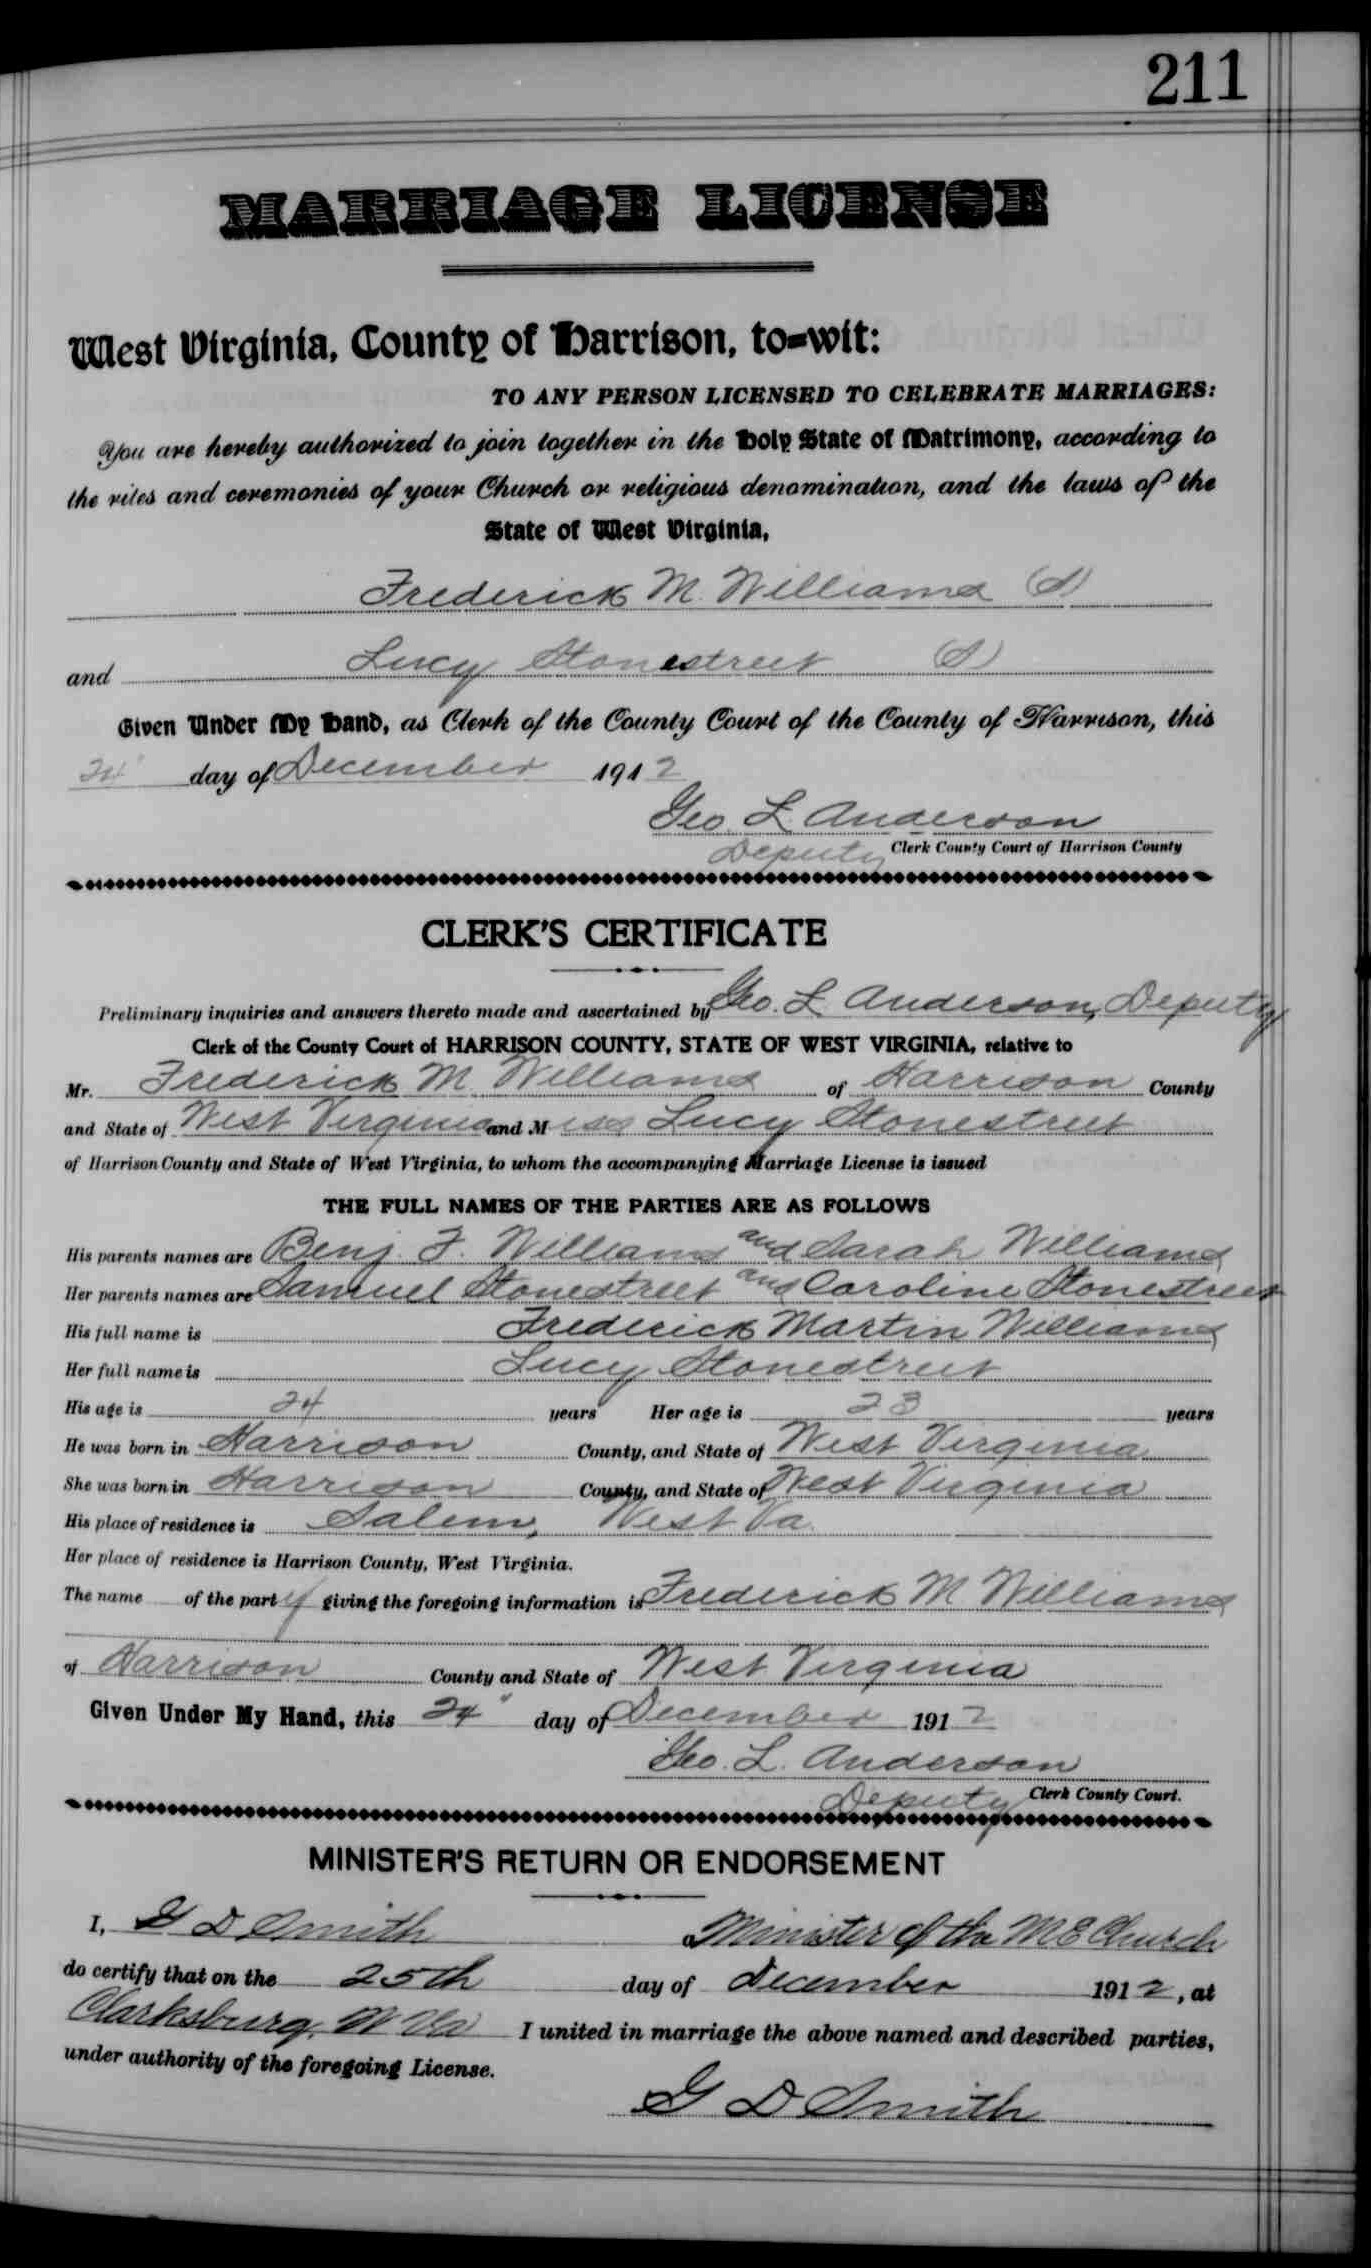 211
MARRIAGE LICENSE
West Virginia, County of Harrison, to=wit:
TO ANY PERSON LICENSED TO CELEBRATE MARRIAGES:
You are hereby authorized to join together in the Holy State of Matrimony, according to
the rites and ceremonies of your Church or religious denomination, and the laws of the
State of West Virginia,
Frederick M. Williams (S)
and Lucy Stonestreet (S)
Given Under My Hand, as Clerk of the County Court of the County of Harrison, this
24" day of December 1912
Geo. L. Anderson
Deputy Clerk County Court of Harrison County
CLERK'S CERTIFICATE
Preliminary inquiries and answers thereto made and ascertained by Geo. L. Anderson, Deputy
Clerk of the County Court of HARRISON COUNTY, STATE OF WEST VIRGINIA, relative to
Mr. Frederick M. Williams of Harrison County
and State of West Virginia and Miss Lucy Stonestreet
of Harrison County and State of West Virginia, to whom the accompanying Marriage License is issued
THE FULL NAMES OF THE PARTIES ARE AS FOLLOWS
His parents names are Benj. F. Williams and Sarah Williams
Her parents names are Samuel Stonestreet and Caroline Stonestreet
His full name is Frederick Martin Williams
Her full name is Lucy Stonestreet
His age is 24 years Her age is 23 years
He was born in Harrison County, and State of West Virginia
She was born in Harrison County, and State of West Virginia
His place of residence is Salem, West Va.
Her place of residence is Harrison County, West Virginia.
The name of the party giving the foregoing information is Frederick M Williams
of Harrison County and State of West Virginia
Given Under My Hand, this 24" day of December 1912
Geo. L. Anderson
Deputy Clerk County Court.
MINISTER'S RETURN OR ENDORSEMENT
I, G D Smith Minister of the M E Church
do certify that on the 25th day of December 1912, at
Clarksburg, W Va I united in marriage the above named and described parties,
under authority of the foregoing License.
G D Smith